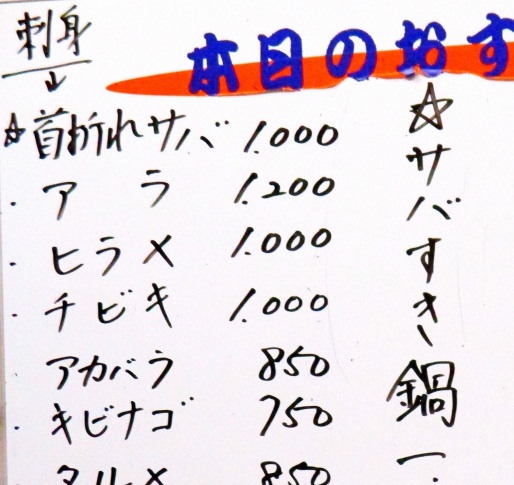 本日のおす
刺身
↓
☆首折れサバ 1.000
・ア ラ 1.200
・ヒラメ 1.000
・チビキ 1.000
アカバラ 850
・キビナゴ 750
タルメ 850
☆サバすき鍋一